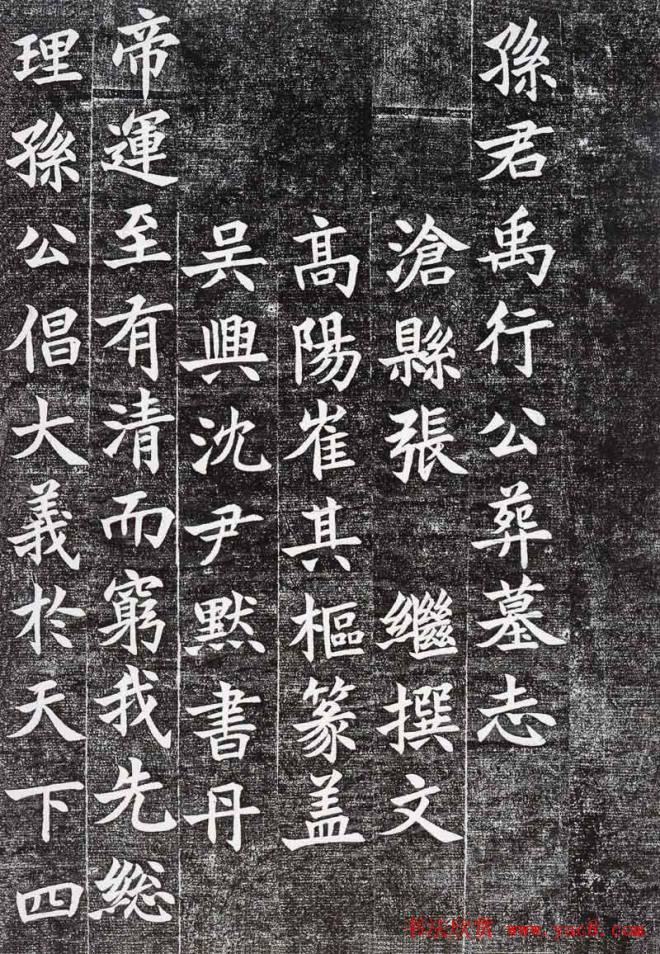 孫君禹行公葬墓志
滄縣張 繼撰文
高陽崔其樞篆盖
吳興沈尹默書丹
帝運至有清而窮我先総
理孫公倡大義於天下四
书法欣赏 www.yac8.com